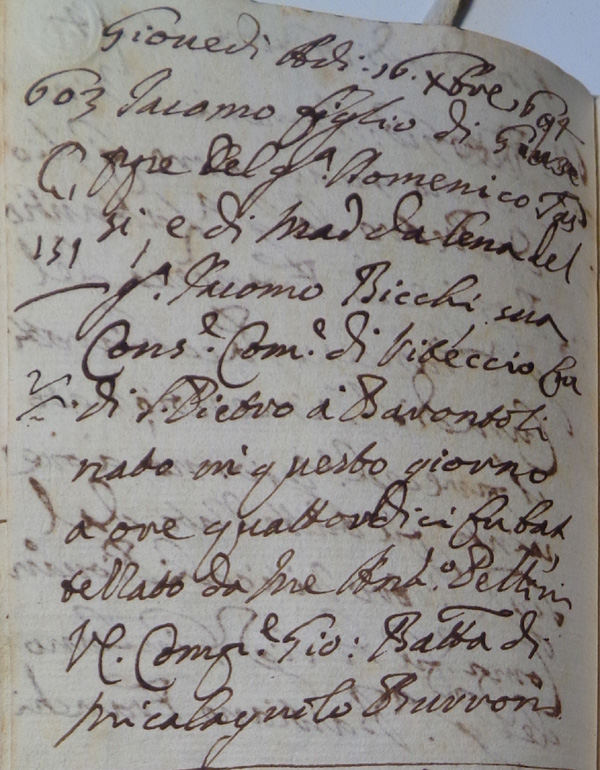 Giovedi Adi: 16. Xbre, 1692
603 Iacomo figlio di Giuse
C, ppe del q.m Domenico Tas
151 si, e di Maddalena del
q.m Iacomo Bicchi sua
Cons.e Com.e di Vibeccio Cu
di S. Pietro à Barontoli
nato in questo giorno
a ore quattordici fu bat
tezzato da me Ant.o Pettini
Comp.e Gio: Batta di
Micalagnilo Burroni